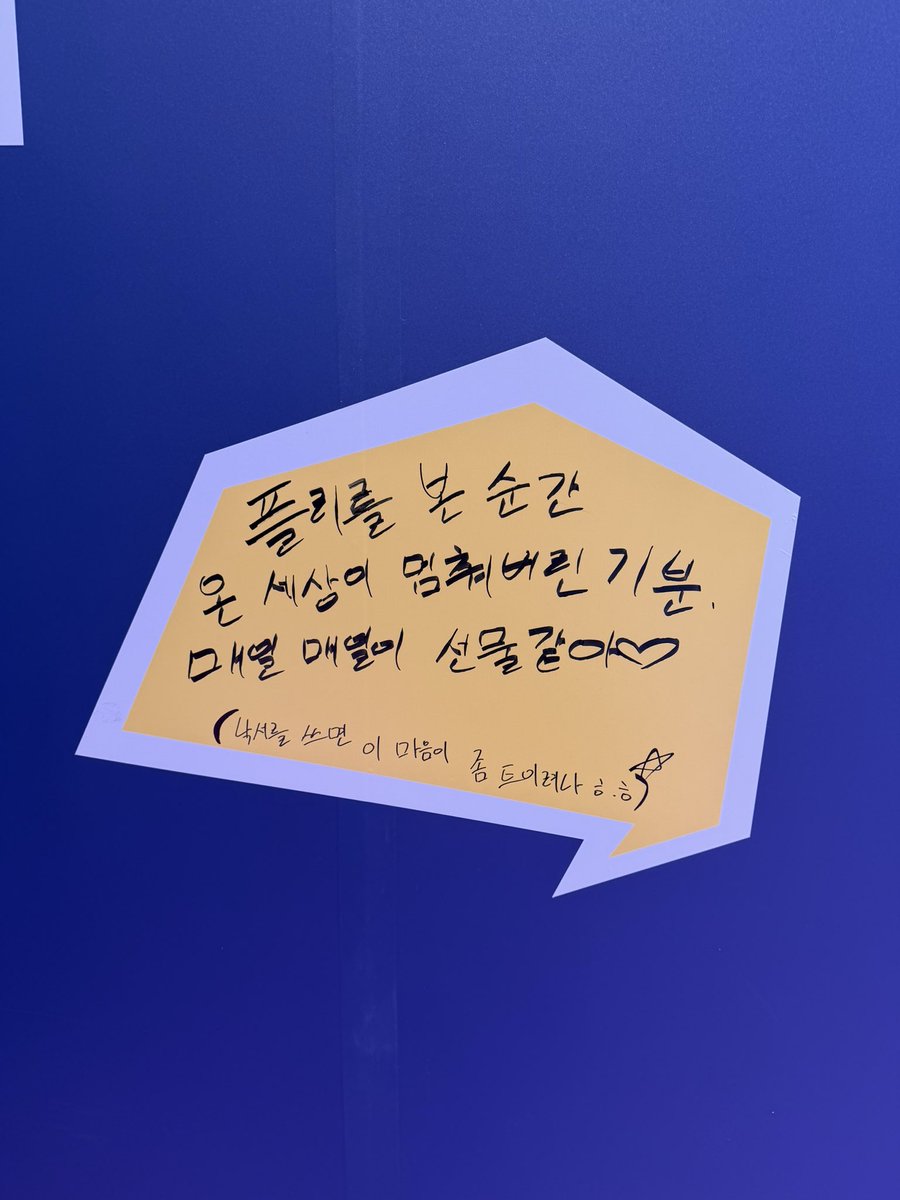 플리를 본 순간
온 세상이 멈춰버린 기분.
매열 매열이 선물같아♡
(낙서를 쓰면 이 마음이 좀 트이려나 ㅎ.ㅎ)☆